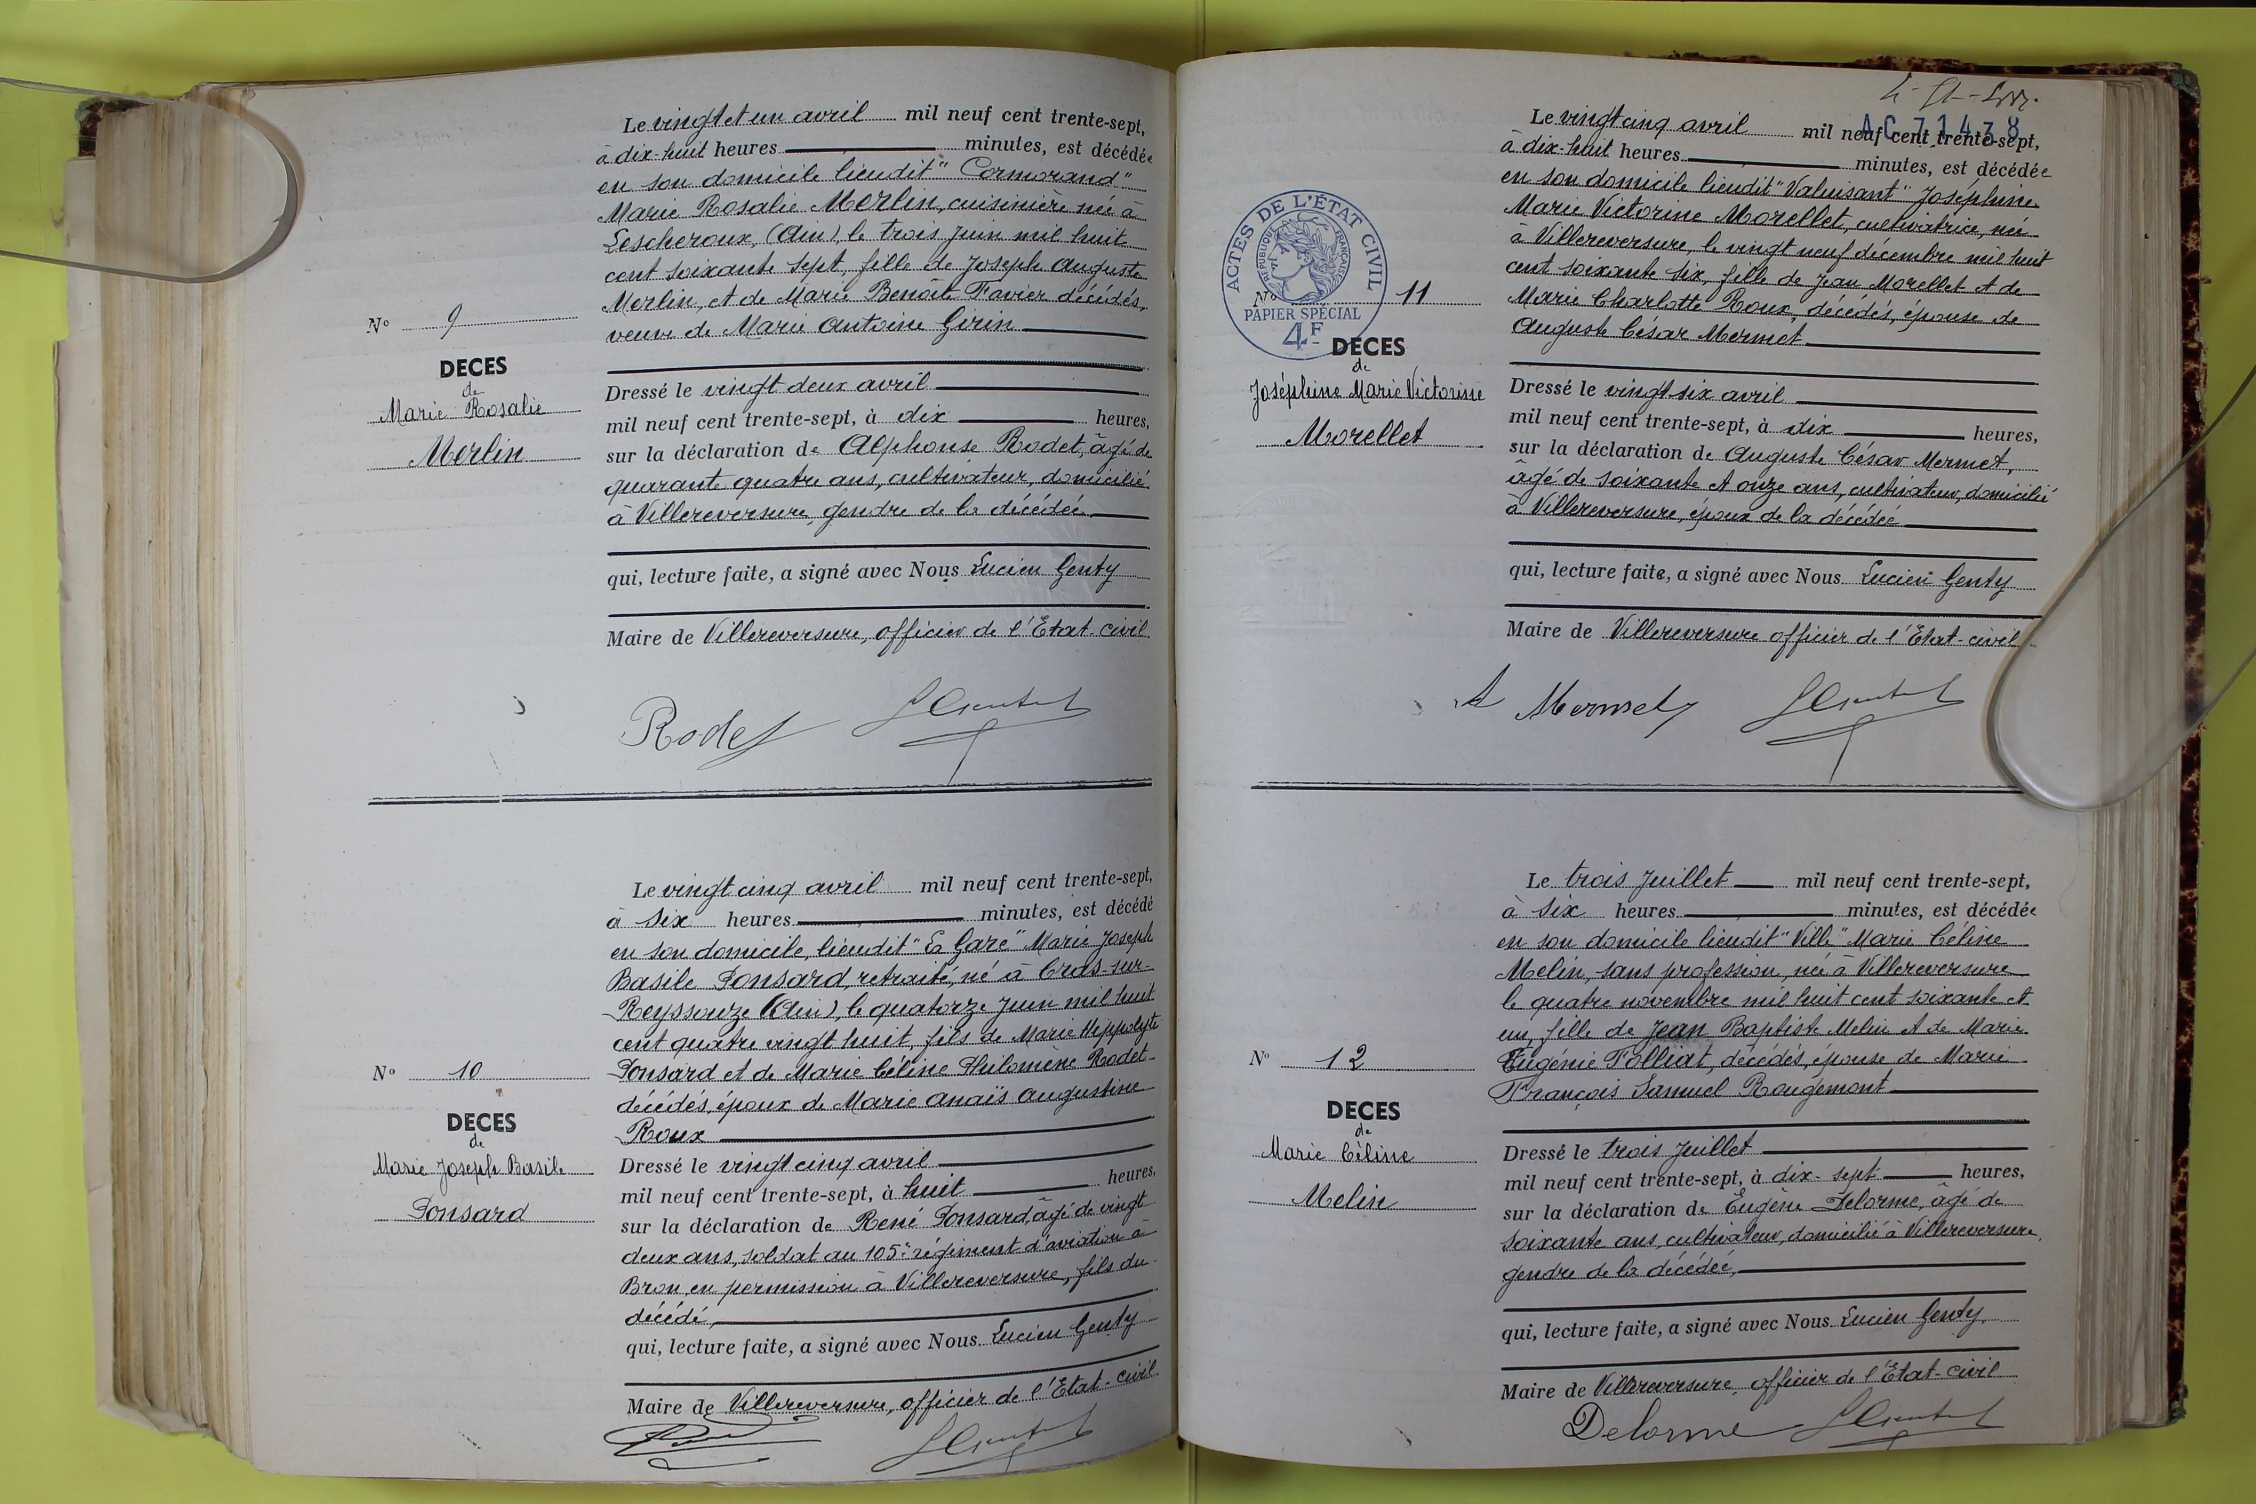 Le vingt et un avril mil neuf cent trente-sept,
à dix-huit heures minutes, est décédée
en son domicile lieudit "Cormorand"
Marie Rosalie Merlin, cuisinière née à
Lescheroux, (Ain), le trois juin mil huit
cent soixante sept, fille de Joseph Auguste
Merlin, et de Marie Benoîte Favier décédés,
veuve de Marie Antoine Girin
N° 9
DECES
de
Marie Rosalie
Merlin
Dressé le vingt deux avril
mil neuf cent trente-sept, à dix heures,
sur la déclaration de Alphonse Rodet, âgé de
quarante quatre ans, cultivateur, domicilié
à Villereversure, gendre de la décédée
qui, lecture faite, a signé avec Nous Lucien Genty
Maire de Villereversure, officier de l'Etat-civil
Rodet
Le vingt cinq avril mil neuf cent trente-sept,
à six heures minutes, est décédé
en son domicile, lieudit "La Gare" Marie Joseph
Basile Ponsard, retraité, né à Cras-sur-
Reyssouze (Ain), le quatorze juin mil huit
cent quatre vingt huit, fils de Marie Hippolyte
Ponsard et de Marie Céline Philomène Rodet
décédés, époux de Marie Anaïs Augustine
Roux
N° 10
DECES
de
Marie Joseph Basile
Ponsard
Dressé le vingt cinq avril
mil neuf cent trente-sept, à huit heures,
sur la déclaration de René Ponsard, âgé de vingt
deux ans, soldat au 105e régiment d'aviation à
Bron, en permission à Villereversure, fils du
décédé,
qui, lecture faite, a signé avec Nous Lucien Genty
Maire de Villereversure, officier de l'Etat-civil
AC 71438
Le vingt cinq avril mil neuf cent trente-sept,
à dix-huit heures minutes, est décédée
en son domicile lieudit "Valuisant" Joséphine
Marie Victorine Morellet, cultivatrice, née
à Villereversure, le vingt neuf décembre mil huit
cent soixante six, fille de Jean Morellet et de
Marie Charlotte Roux, décédés, épouse de
Auguste César Mermet
ACTES DE L'ÉTAT CIVIL
RÉPUBLIQUE FRANÇAISE
PAPIER SPÉCIAL
4F
N° 11
DECES
de
Joséphine Marie Victorine
Morellet
Dressé le vingt six avril
mil neuf cent trente-sept, à dix heures,
sur la déclaration de Auguste César Mermet,
âgé de soixante et onze ans, cultivateur, domicilié
à Villereversure, époux de la décédée
qui, lecture faite, a signé avec Nous Lucien Genty
Maire de Villereversure officier de l'Etat-civil
A Mermet
Le trois juillet mil neuf cent trente-sept,
à six heures minutes, est décédée
en son domicile lieudit "Ville" Marie Céline
Melin, sans profession, née à Villereversure
le quatre novembre mil huit cent soixante et
un, fille de Jean Baptiste Melin et de Marie
Eugénie Folliat, décédés, épouse de Marie
François Samuel Rougemont
N° 12
DECES
de
Marie Céline
Melin
Dressé le trois juillet
mil neuf cent trente-sept, à dix-sept heures,
sur la déclaration de Eugène Delorme, âgé de
soixante ans, cultivateur, domicilié à Villereversure,
gendre de la décédée,
qui, lecture faite, a signé avec Nous Lucien Genty
Maire de Villereversure officier de l'Etat-civil
Delorme